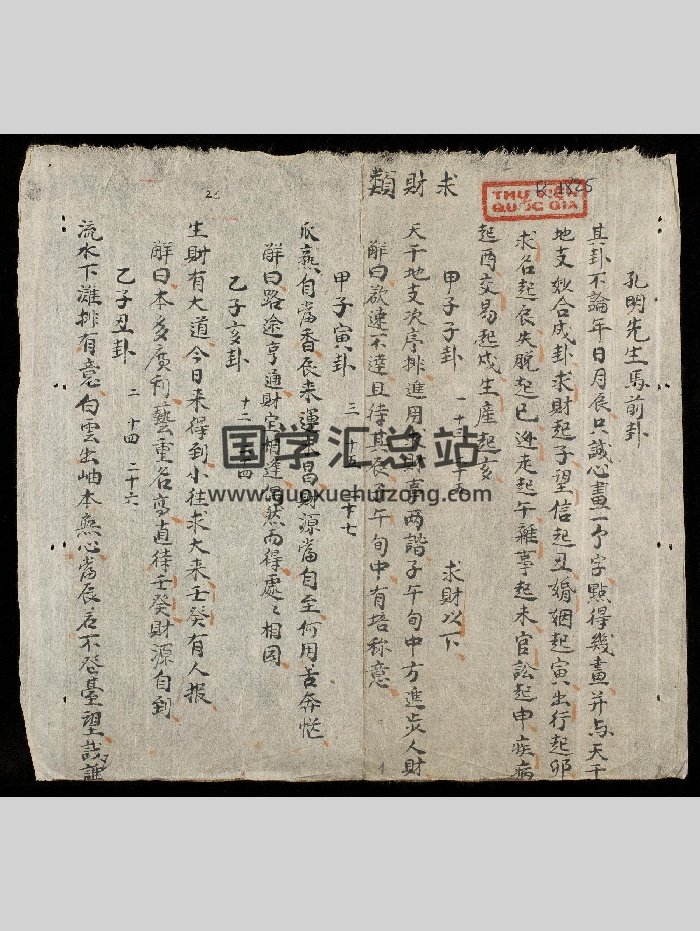 孔明先生馬前卦
其卦不論年日月辰只誠心畫一个字點得幾畫并与天干
地支妙合成卦求財起子望信起丑婚姻起寅出行起卯
求名起辰失脫起巳逃走起午雜事起未官訟起申疾病
起酉交易起戌生產起亥
甲子子卦 一 十三 求財以下
求財類
天干地支次序排進用 財喜两諧子午旬中方進步人財
解曰欲速不達且待其辰子午旬中有培称意
甲子寅卦 三 十五 十七
瓜熟自當香辰来運 昌財源當自至何用苦奔忙
解曰路途亨通財官相逢偶然而得處〻相因
乙子亥卦 十二
生財有大道今日来得到小往求大来壬癸有人报
解曰本多廣利藝重名高直待壬癸財源自到
乙子丑卦 二 十四 二十六
流水下灘排有意白雲出岫本無心當辰若不登臺望哉誰
THƯ VIỆN
QUỐC GIA
R.1825
国学汇总站
www.guoxuehuizong.com